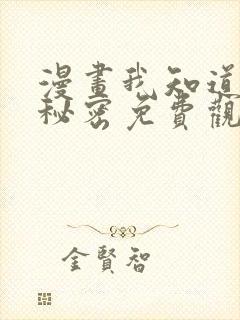 漫畫我知道
秘密免費觀
金賢智